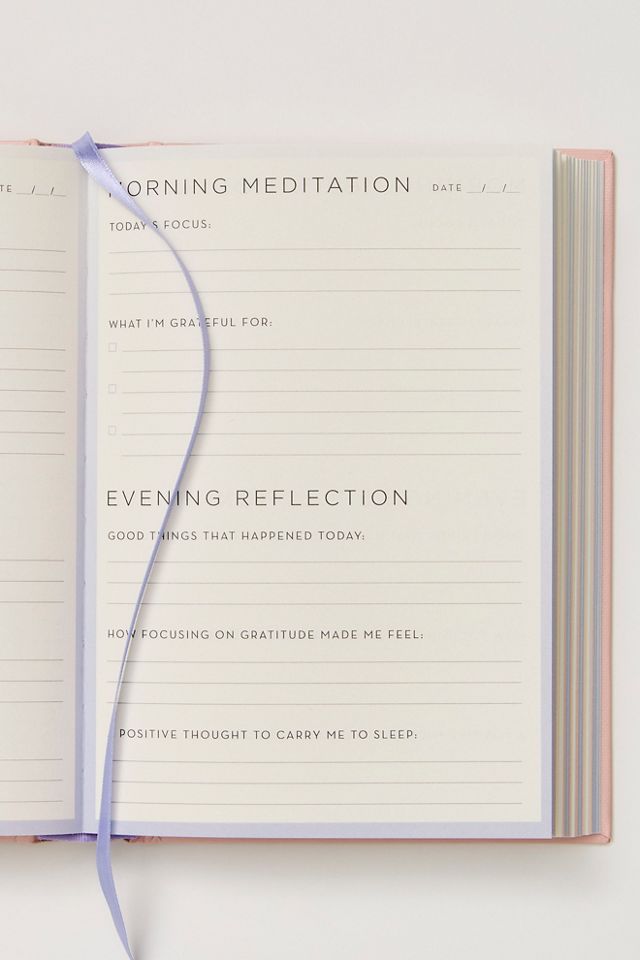 TE __/__/__
MORNING MEDITATION DATE __/__/__
TODAY'S FOCUS:
WHAT I'M GRATEFUL FOR:
EVENING REFLECTION
GOOD THINGS THAT HAPPENED TODAY:
HOW FOCUSING ON GRATITUDE MADE ME FEEL:
POSITIVE THOUGHT TO CARRY ME TO SLEEP: